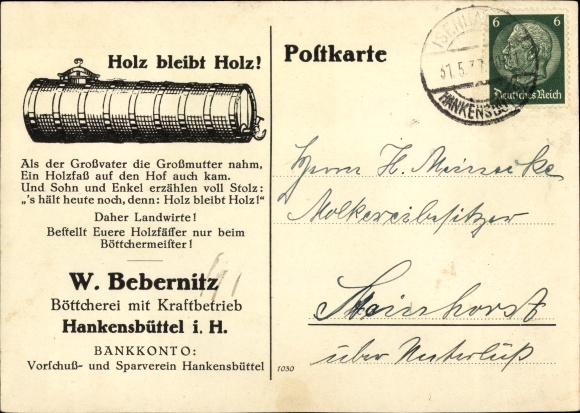 Holz bleibt Holz!
Als der Großvater die Großmutter nahm,
Ein Holzfaß auf den Hof auch kam.
Und Sohn und Enkel erzählen voll Stolz:
„'s hält heute noch, denn: Holz bleibt Holz!“
Daher Landwirte!
Bestellt Euere Holzfässer nur beim
Böttchermeister!
W. Bebernitz
Böttcherei mit Kraftbetrieb
Hankensbüttel i. H.
BANKKONTO:
Vorschuß- und Sparverein Hankensbüttel
1030
Postkarte
6 6
Deutsches Reich
HANKENSBÜ
Herrn H. Meinecke
Molkereibesitzer
Steinhorst
über Unterlüß